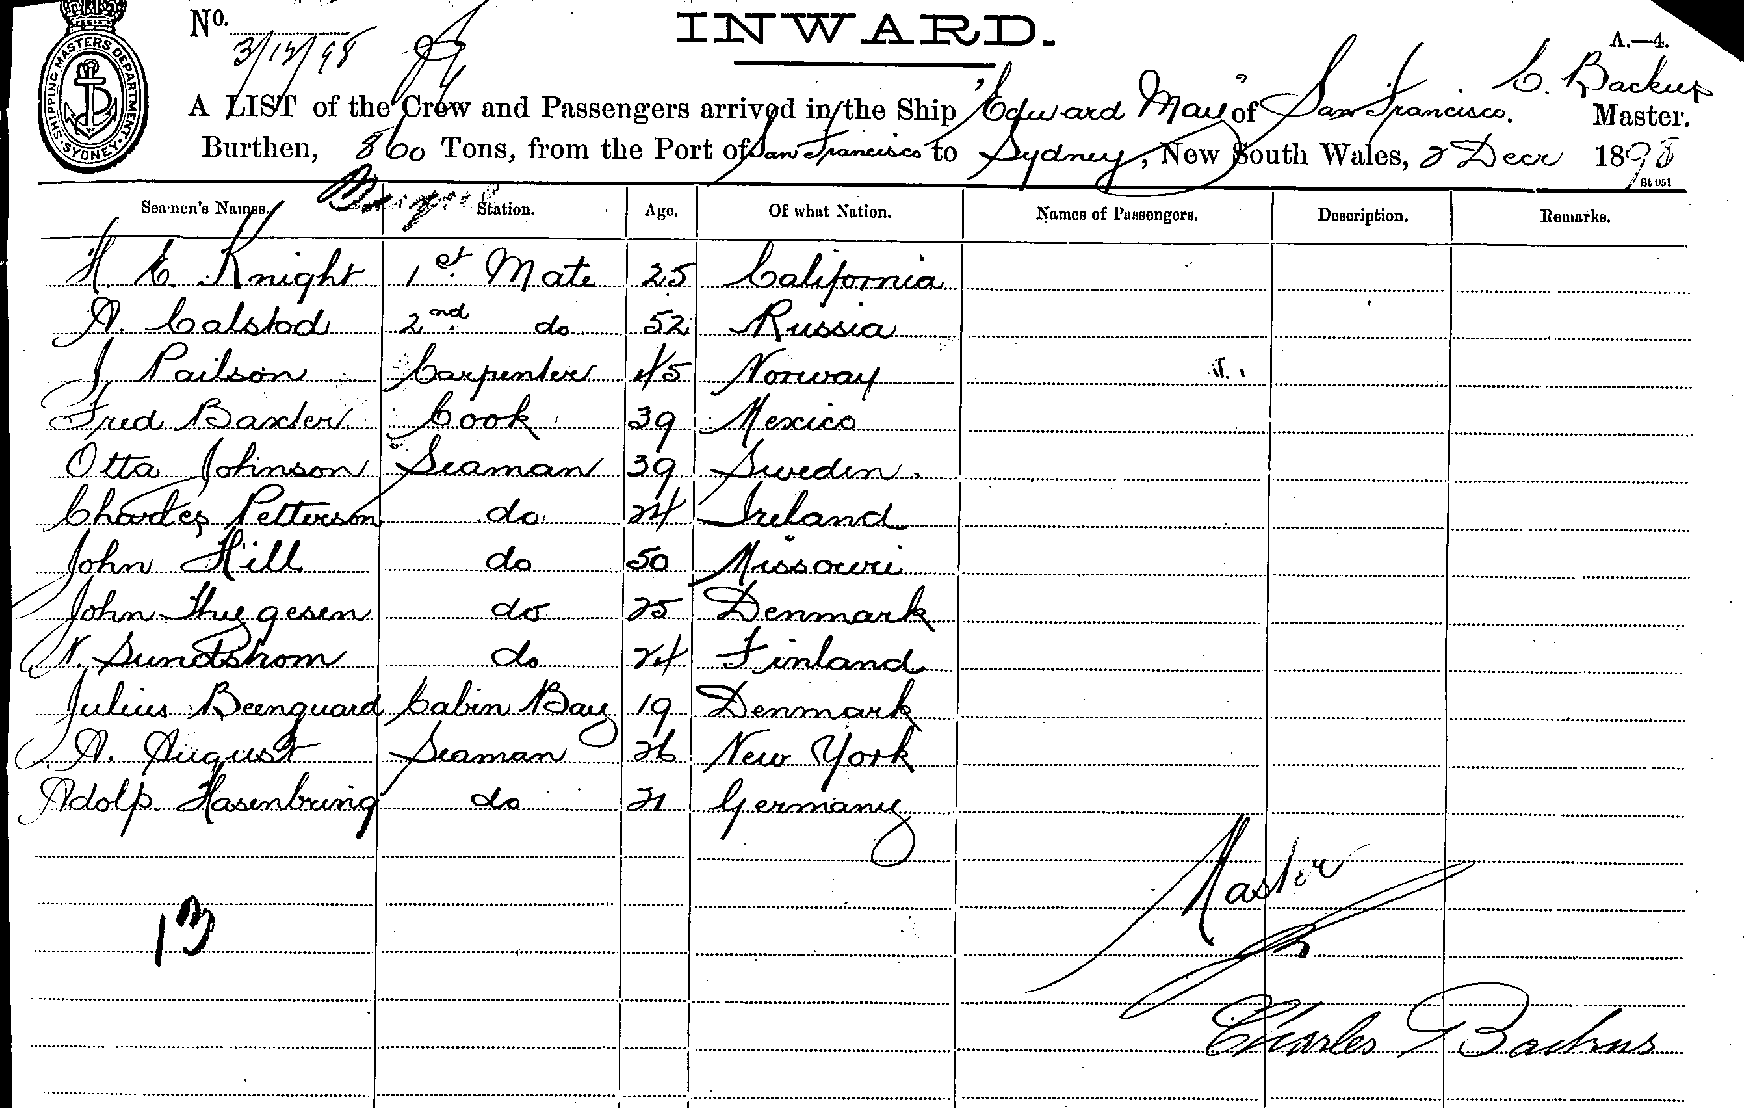 SHIPPING MASTERS DEPARTMENT SYDNEY
No.
3/12/98
INWARD.
A.—4.
C. Backus
A LIST of the Crew and Passengers arrived in the Ship "Edward May" of San Francisco. Master.
Burthen, 860 Tons, from the Port of San Francisco to Sydney, New South Wales, 2 Decr 1898
Seamen's Names. Station. Age. Of what Nation. Names of Passengers. Description. Remarks.
H. E. Knight 1st Mate 25 California
A. Calstod 2nd do 52 Russia
J. Pailson Carpenter 45 Norway
Fred Baxter Cook 39 Mexico
Otta Johnson Seaman 39 Sweden.
Charles Petterson do 24 Ireland
John Hill do 50 Missouri
John Thygesen do 25 Denmark
N. Sundstrom do 24 Finland
Julius Beenguard Cabin Bay 19 Denmark
A. August Seaman 26 New York
Adolp. Hasenbring do 21 Germany
Master
13
Charles Backus